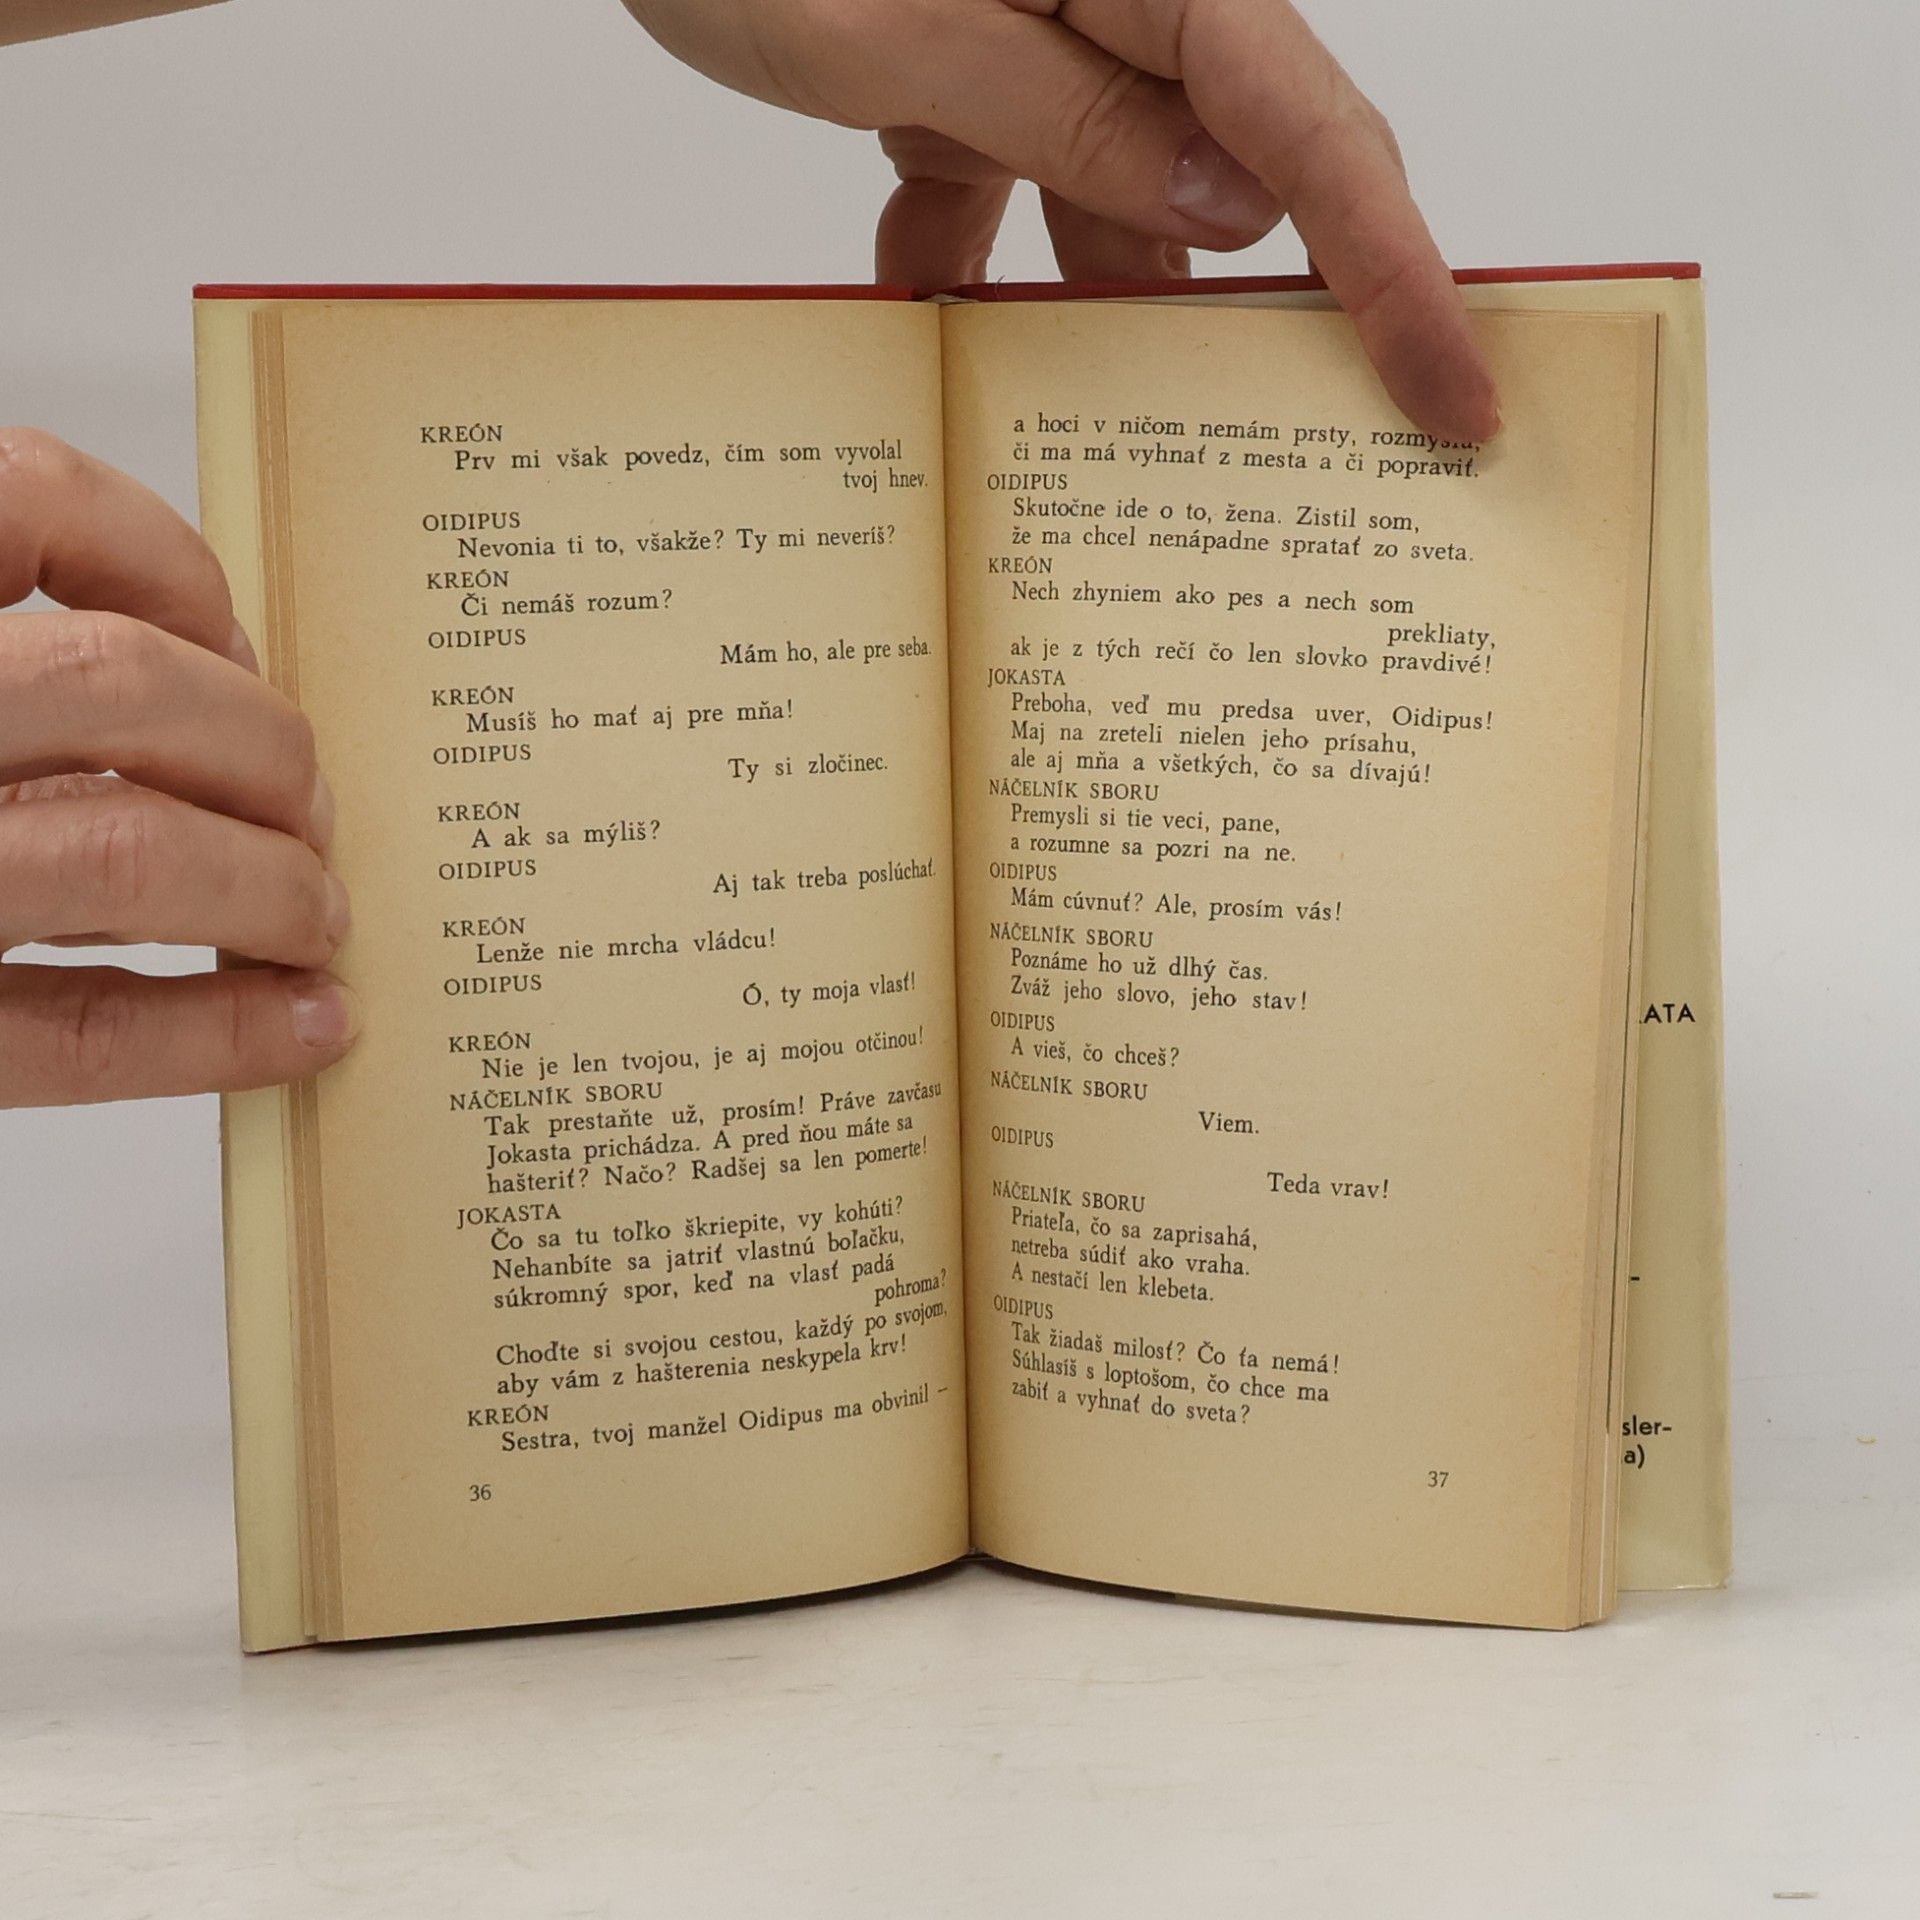 KREÓN
Prv mi však povedz, čím som vyvolal
tvoj hnev.
OIDIPUS
Nevonia ti to, všakže? Ty mi neveríš?
KREÓN
Či nemáš rozum?
OIDIPUS
Mám ho, ale pre seba.
KREÓN
Musíš ho mať aj pre mňa!
OIDIPUS
Ty si zločinec.
KREÓN
A ak sa mýliš?
OIDIPUS
Aj tak treba poslúchať.
KREÓN
Lenže nie mrcha vládcu!
OIDIPUS
Ó, ty moja vlasť!
KREÓN
Nie je len tvojou, je aj mojou otčinou!
NÁČELNÍK SBORU
Tak prestaňte už, prosím! Práve zavčasu
Jokasta prichádza. A pred ňou máte sa
hašteriť? Načo? Radšej sa len pomerte!
JOKASTA
Čo sa tu toľko škriepite, vy kohúti?
Nehanbíte sa jatriť vlastnú boľačku,
súkromný spor, keď na vlasť padá
pohroma?
Choďte si svojou cestou, každý po svojom,
aby vám z hašterenia neskypela krv!
KREÓN
Sestra, tvoj manžel Oidipus ma obvinil –
36
a hoci v ničom nemám prsty,
či ma má vyhnať z mesta a či popraviť.
OIDIPUS
Skutočne ide o to, žena. Zistil som,
že ma chcel nenápadne spratať zo sveta.
KREÓN
Nech zhyniem ako pes a nech som
prekliaty,
ak je z tých rečí čo len slovko pravdivé!
JOKASTA
Preboha, veď mu predsa uver, Oidipus!
Maj na zreteli nielen jeho prísahu,
ale aj mňa a všetkých, čo sa dívajú!
NÁČELNÍK SBORU
Premysli si tie veci, pane,
a rozumne sa pozri na ne.
OIDIPUS
Mám cúvnuť? Ale, prosím vás!
NÁČELNÍK SBORU
Poznáme ho už dlhý čas.
Zváž jeho slovo, jeho stav!
OIDIPUS
A vieš, čo chceš?
NÁČELNÍK SBORU
Viem.
OIDIPUS
Teda vrav!
NÁČELNÍK SBORU
Priateľa, čo sa zaprisahá,
netreba súdiť ako vraha.
A nestačí len klebeta.
OIDIPUS
Tak žiadaš milosť? Čo ťa nemá!
Súhlasíš s loptošom, čo chce ma
zabiť a vyhnať do sveta?
37